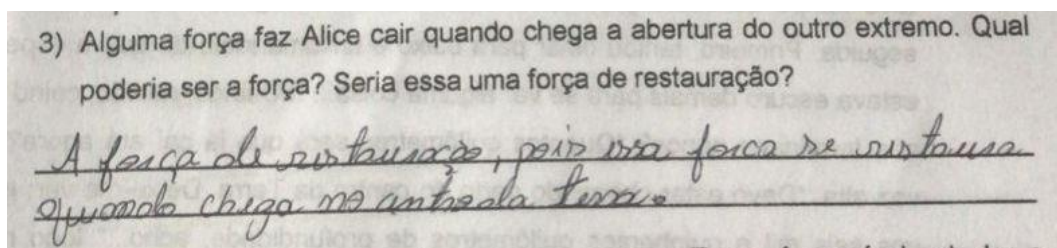 3) Alguma força faz Alice cair quando chega a abertura do outro extremo. Qual
poderia ser a força? Seria essa uma força de restauração?
A força de restauração, pois essa força se restaura
quando chega no centro da terra.